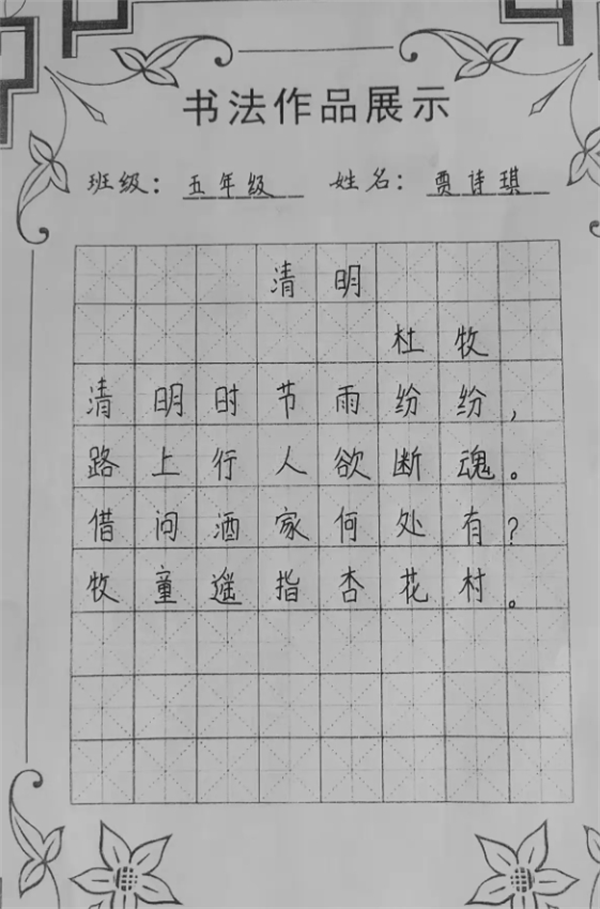 书法作品展示
班级：五年级 姓名：贾诗琪
清明
杜牧
清明时节雨纷纷，
路上行人欲断魂。
借问酒家何处有？
牧童遥指杏花村。